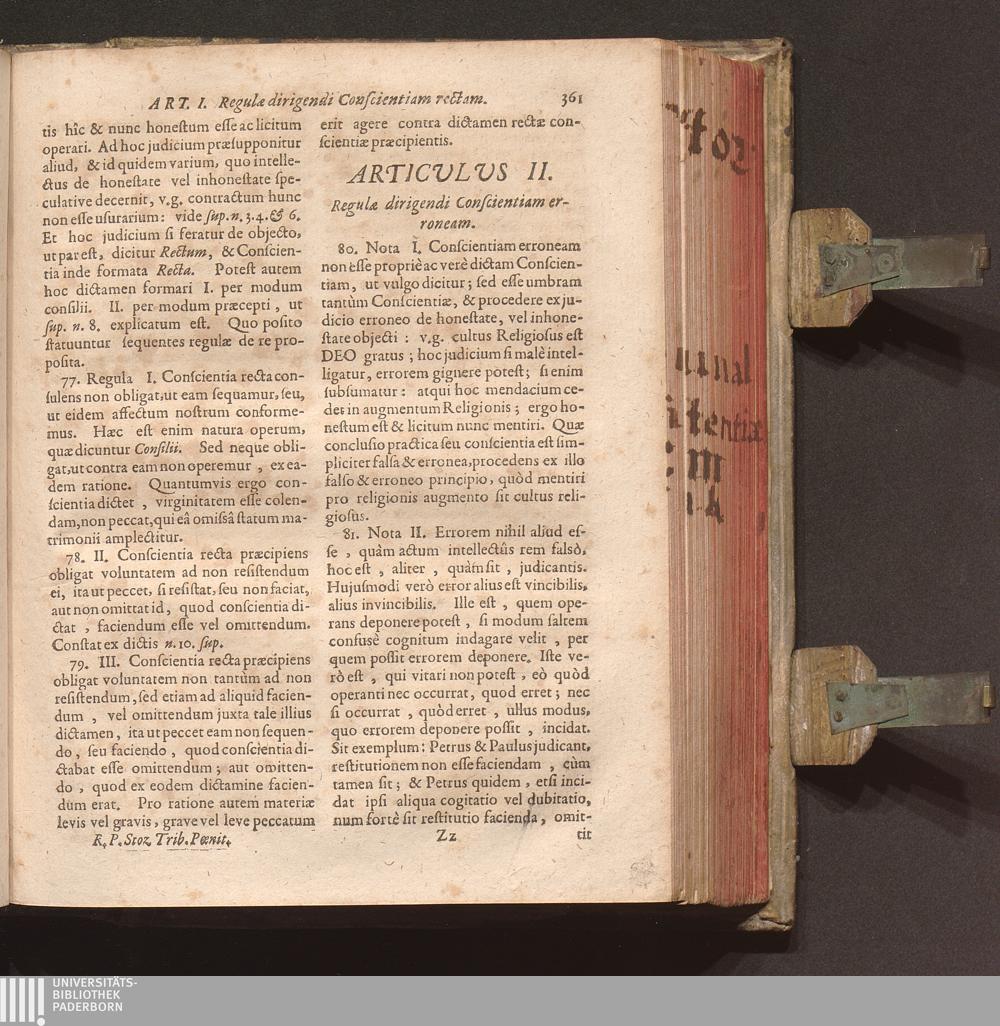 ART. I. Regulæ dirigendi Conscientiam rectam. 361
tis hîc & nunc honestum esse ac licitum
operari. Ad hoc judicium præsupponitur
aliud, & id quidem varium, quo intelle-
ctus de honestate vel inhonestate spe-
culative decernit, v.g. contractum hunc
non esse usurarium: vide sup. n. 3. 4. & 6.
Et hoc judicium si feratur de objecto,
ut par est, dicitur Rectum, & Conscien-
tia inde formata Recta. Potest autem
hoc dictamen formari I. per modum
consilii. II. per modum præcepti, ut
sup. n. 8. explicatum est. Quo posito
statuuntur sequentes regulæ de re pro-
posita.
77. Regula I. Conscientia recta con-
sulens non obligat, ut eam sequamur, seu,
ut eidem affectum nostrum conforme-
mus. Hæc est enim natura operum,
quæ dicuntur Consilii. Sed neque obli-
gat, ut contra eam non operemur, ex ea-
dem ratione. Quantumvis ergo con-
scientia dictet, virginitatem esse colen-
dam, non peccat, qui eâ omissâ statum ma-
trimonii amplectitur.
78. II. Conscientia recta præcipiens
obligat voluntatem ad non resistendum
ei, ita ut peccet, si resistat, seu non faciat,
aut non omittat id, quod conscientia di-
ctat, faciendum esse vel omittendum.
Constat ex dictis n. 10. sup.
79. III. Conscientia recta præcipiens
obligat voluntatem non tantùm ad non
resistendum, sed etiam ad aliquid facien-
dum, vel omittendum juxta tale illius
dictamen, ita ut peccet eam non sequen-
do, seu faciendo, quod conscientia di-
ctabat esse omittendum; aut omitten-
do, quod ex eodem dictamine facien-
dum erat. Pro ratione autem materiæ
levis vel gravis, grave vel leve peccatum
R. P. Stoz Trib. Pœnit.
erit agere contra dictamen rectæ con-
scientiæ præcipientis.
ARTICULUS II.
Regulæ dirigendi Conscientiam er-
roneam.
80. Nota I. Conscientiam erroneam
non esse propriè ac verè dictam Conscien-
tiam, ut vulgo dicitur; sed esse umbram
tantùm Conscientiæ, & procedere ex ju-
dicio erroneo de honestate, vel inhone-
state objecti: v.g. cultus Religiosus est
DEO gratus; hoc judicium si malè intel-
ligatur, errorem gignere potest; si enim
subsumatur: atqui hoc mendacium ce-
det in augmentum Religionis; ergo ho-
nestum est & licitum nunc mentiri. Quæ
conclusio practica seu conscientia est sim-
pliciter falsa & erronea, procedens ex illo
falso & erroneo principio, quòd mentiri
pro religionis augmento sit cultus reli-
giosus.
81. Nota II. Errorem nihil aliud es-
se, quàm actum intellectûs rem falsò,
hoc est, aliter, quàm sit, judicantis.
Hujusmodi verò error alius est vincibilis,
alius invincibilis. Ille est, quem ope-
rans deponere potest, si modum saltem
confusè cognitum indagare velit, per
quem possit errorem deponere. Iste ve-
rò est, qui vitari non potest, eò quòd
operanti nec occurrat, quod erret; nec
si occurrat, quòd erret, ullus modus,
quo errorem deponere possit, incidat.
Sit exemplum: Petrus & Paulus judicant,
restitutionem non esse faciendam, cùm
tamen sit; & Petrus quidem, etsi inci-
dat ipsi aliqua cogitatio vel dubitatio,
num fortè sit restitutio facienda, omit-
Zz tit
UNIVERSITÄTS-
BIBLIOTHEK
PADERBORN